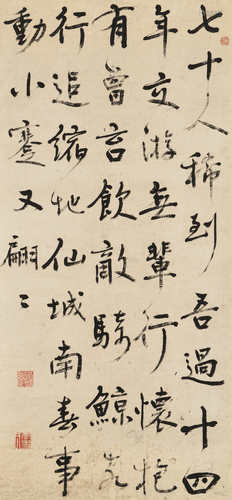 七十人稀到吾過十四
年交游無輩行懷抱
有曾玄飲敵騎鯨客
行追縮地仙城南春事
動小蹇又翩々